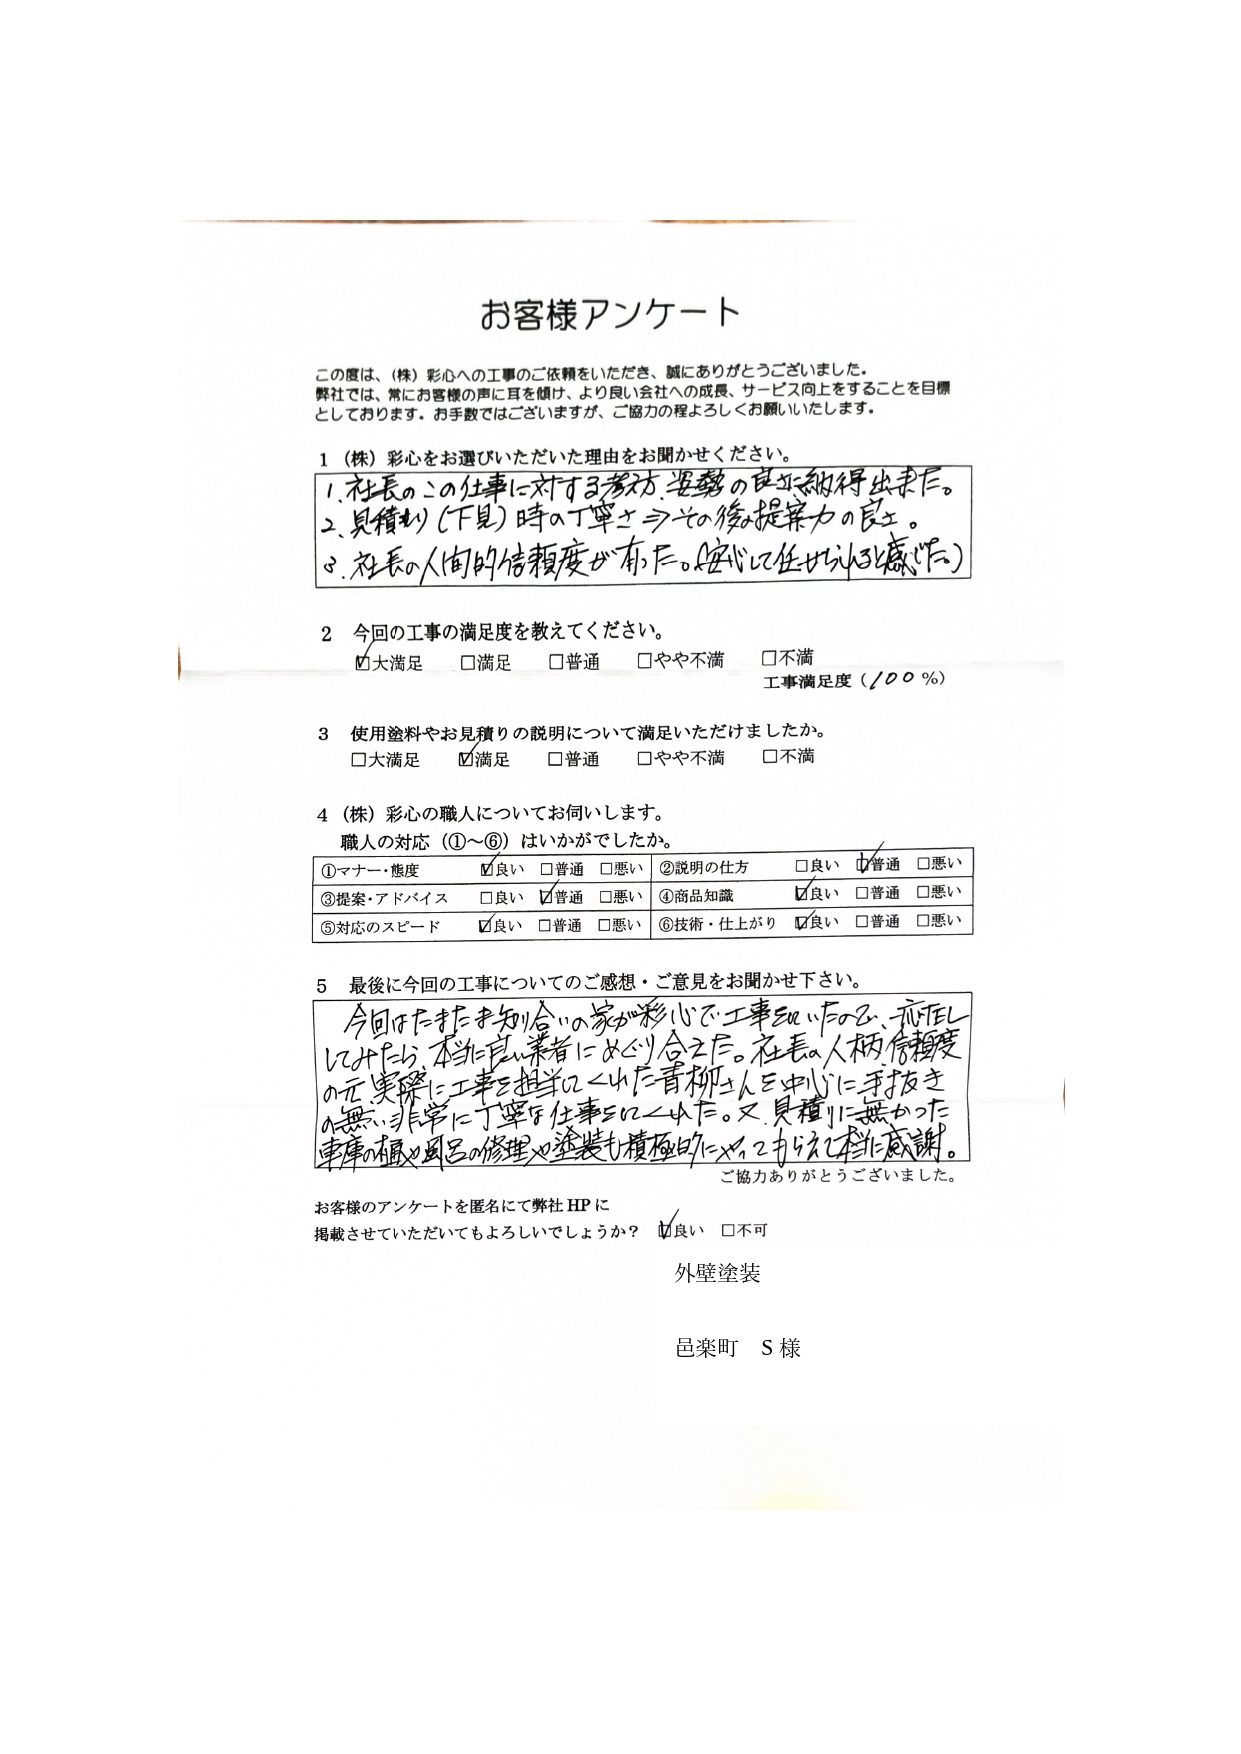 お客様アンケート
この度は、(株) 彩心への工事のご依頼をいただき、誠にありがとうございました。
弊社では、常にお客様の声に耳を傾け、より良い会社への成長、サービス向上をすることを目標
としております。お手数ではございますが、ご協力の程よろしくお願いいたします。
1 (株) 彩心をお選びいただいた理由をお聞かせください。
1、社長のこの仕事に対する考え方、姿勢の良さに納得出来た。
2、見積り(下見)時の丁寧さ⇒その後の提案力の良さ。
3、社長の人間的信頼度が有った。(安心して任せられると感じた。)
2 今回の工事の満足度を教えてください。
☑大満足 □満足 □普通 □やや不満 □不満
工事満足度(100%)
3 使用塗料やお見積りの説明について満足いただけましたか。
□大満足 ☑満足 □普通 □やや不満 □不満
4 (株) 彩心の職人についてお伺いします。
職人の対応(①～⑥)はいかがでしたか。
①マナー・態度 ☑良い □普通 □悪い ②説明の仕方 □良い ☑普通 □悪い
③提案・アドバイス □良い ☑普通 □悪い ④商品知識 ☑良い □普通 □悪い
⑤対応のスピード ☑良い □普通 □悪い ⑥技術・仕上がり ☑良い □普通 □悪い
5 最後に今回の工事についてのご感想・ご意見をお聞かせ下さい。
今回はたまたま知り合いの家が彩心で工事をしていたので、
してみたら、本当に良い業者にめぐり合えた。社長の人柄、信頼度
の元、実際に工事を担当してくれた青柳さんを中心に手抜き
の無い非常に丁寧な仕事をしてくれた。又、見積りに無かった
車庫の樋や風呂の修理や塗装も積極的にやってもらえて本当に感謝。
ご協力ありがとうございました。
お客様のアンケートを匿名にて弊社 HP に
掲載させていただいてもよろしいでしょうか？ ☑良い □不可
外壁塗装
邑楽町 S 様